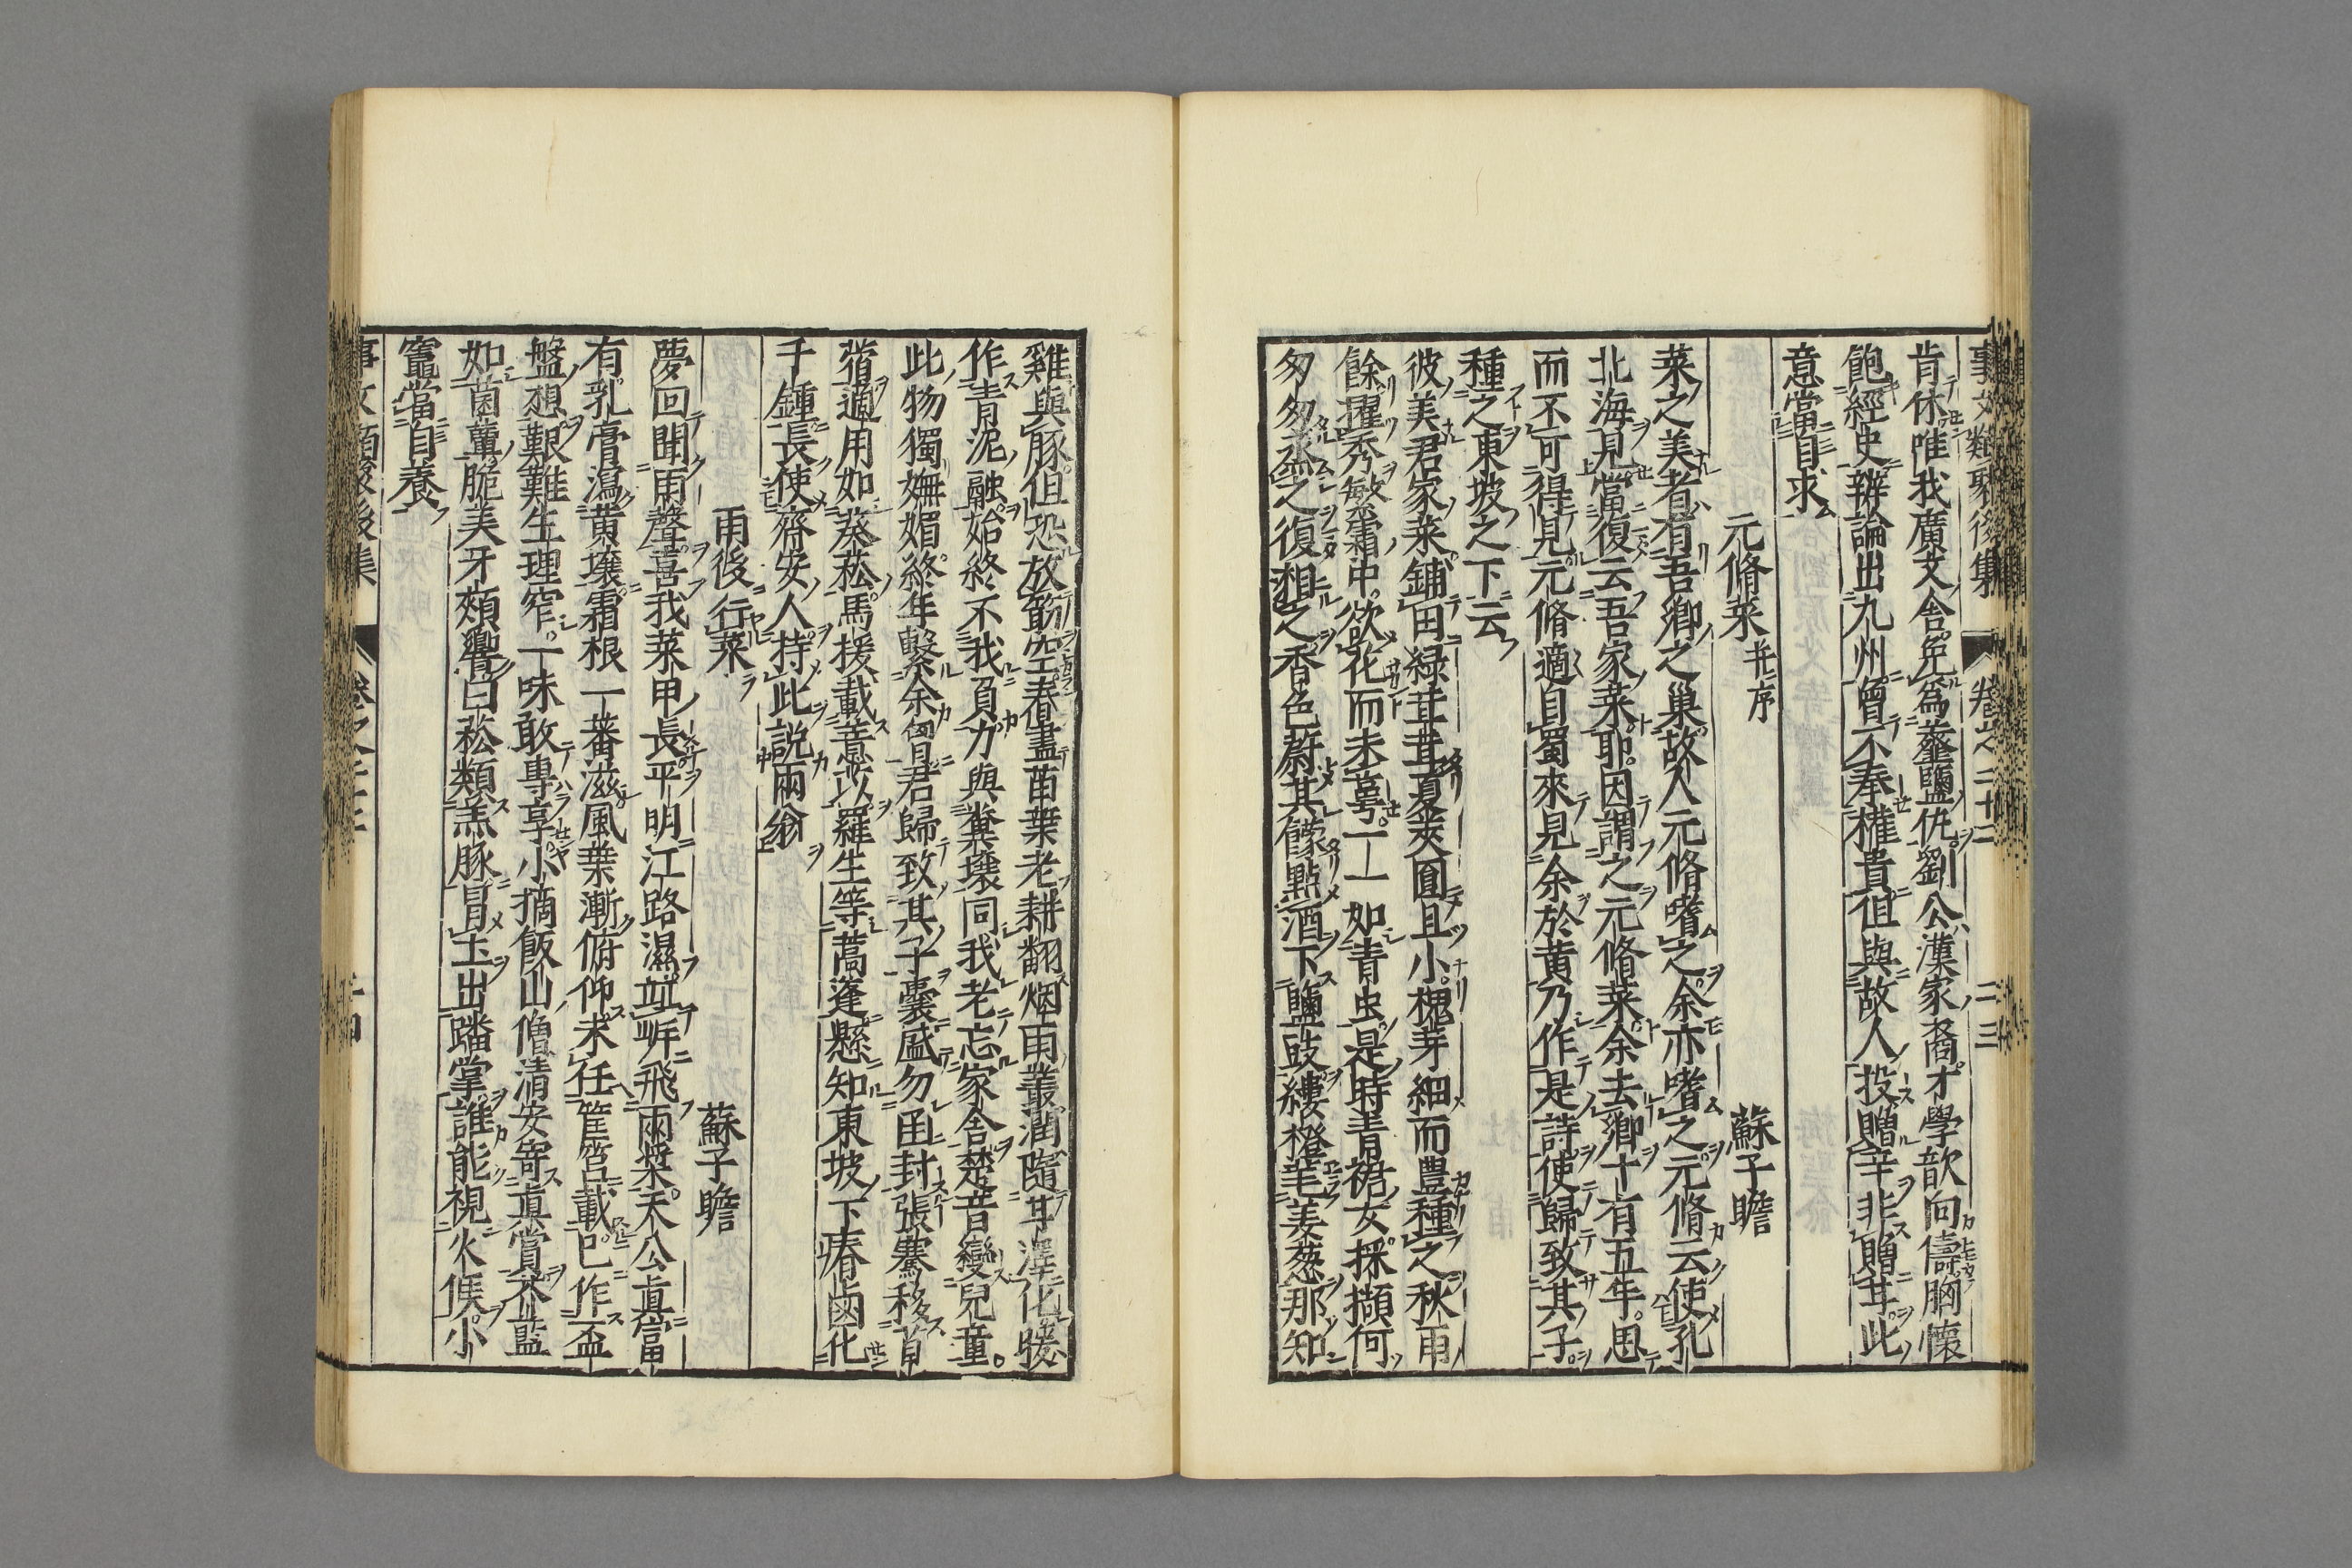 事文類聚後集 卷之二十二 二三
肯休唯我廣文舎免爲虀鹽仇劉公漢家裔才學歆向儔胸懷
飽經史辨論出九州曾不奉權貴但與故人投贈辛非贈茸此
意當自求
元脩菜 并序 蘇子瞻
菜之美者有吾鄉之巢故人元脩嗜之余亦嗜之元脩云使孔
北海見當復云吾家菜耶因謂之元脩菜余去鄉十有五年思
而不可得見元脩適自蜀來見余於黄乃作是詩使歸致其子
種之東坡之下云
彼美君家菜鋪田緑茸茸夏莢圓且小槐芽細而豊種之秋雨
餘擢秀繁霜中欲花而未萼一一如青虫是時青裙女採擷何
匆匆烝之復湘之香色蔚其饛點酒下鹽豉縷橙芼姜葱那知
雞與豚但恐放筯空春盡苗葉老耕翻烟雨叢潤隨其澤化暖
作青泥融始終不我負力與糞壤同我老忘家舎楚音變兒童
此物獨嫵媚終年繫余胷君歸致其子囊盛勿函封張騫移苜
蓿適用如葵菘馬援載薏苡羅生等蒿蓬懸知東坡下瘠鹵化
千鍾長使齊安人持此說兩翁
雨後行菜 蘇子瞻
夢回聞雨聲喜我菜甲長平明江路濕並岸飛兩槳天公眞富
有乳膏瀉黄壤霜根一蕃滋風葉漸俯仰未任筐筥載已作盃
盤想艱難生理窄一味敢專享小摘飯山僧清安寄眞賞芥藍
如菌蕈脆美牙頰響白菘類羔豚冒土出蹯掌誰能視火候小
竈當自養